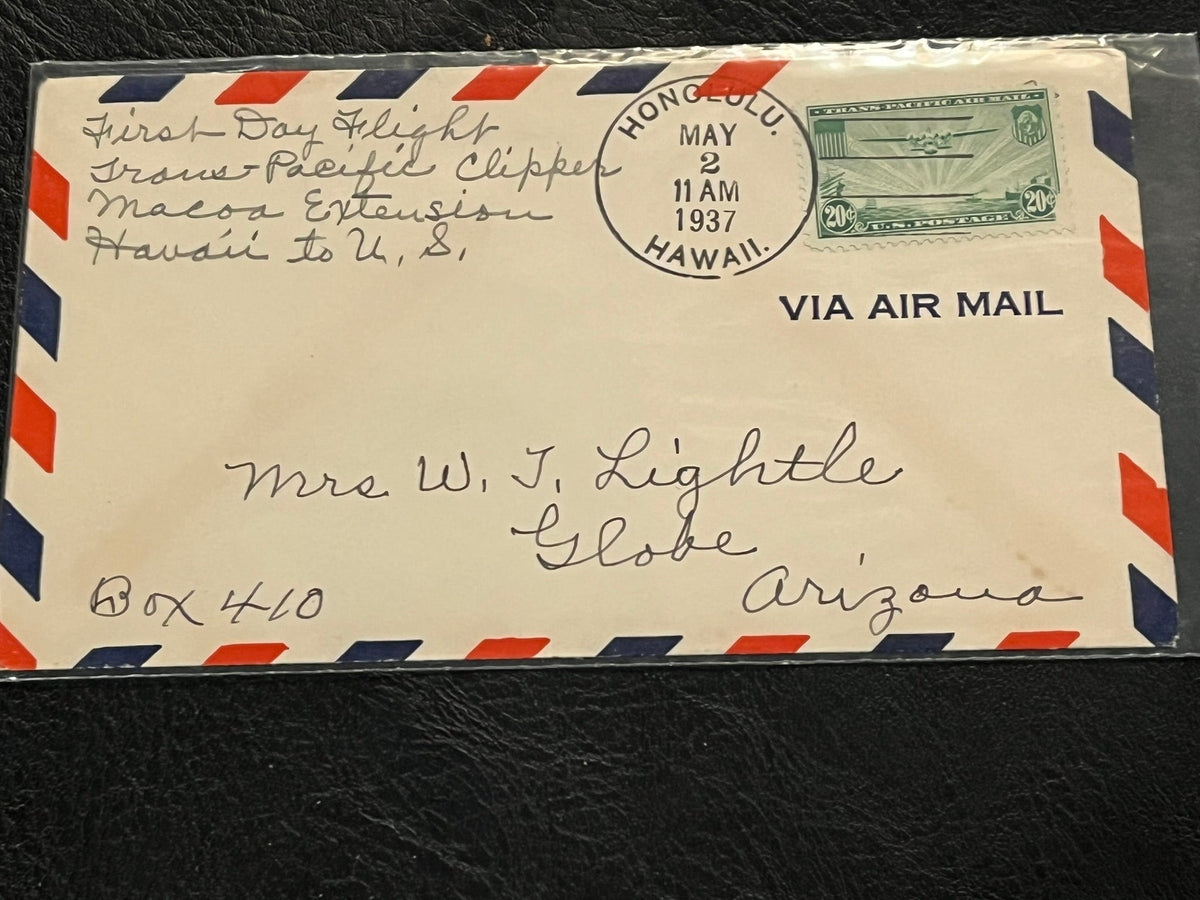 First Day Flight
Trans-Pacific Clipper
Macoa Extension
Havaii to U. S.
HONOLULU.
MAY
2
11 AM
1937
HAWAII.
TRANS-PACIFIC AIR MAIL
20¢ 20¢
U.S. POSTAGE
VIA AIR MAIL
Mrs W. T. Lightle
Globe
Arizona
Box 410